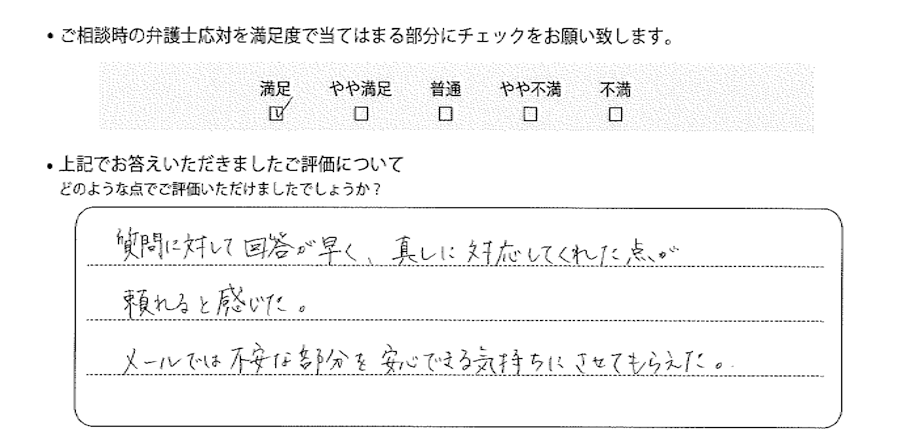 • ご相談時の弁護士応対を満足度で当てはまる部分にチェックをお願い致します。
満足 やや満足 普通 やや不満 不満
☑ ☐ ☐ ☐ ☐
• 上記でお答えいただきましたご評価について
どのような点でご評価いただけましたでしょうか？
質問に対して回答が早く、真しに対応してくれた点が
頼れると感じた。
メールでは不安な部分を安心できる気持ちにさせてもらえた。